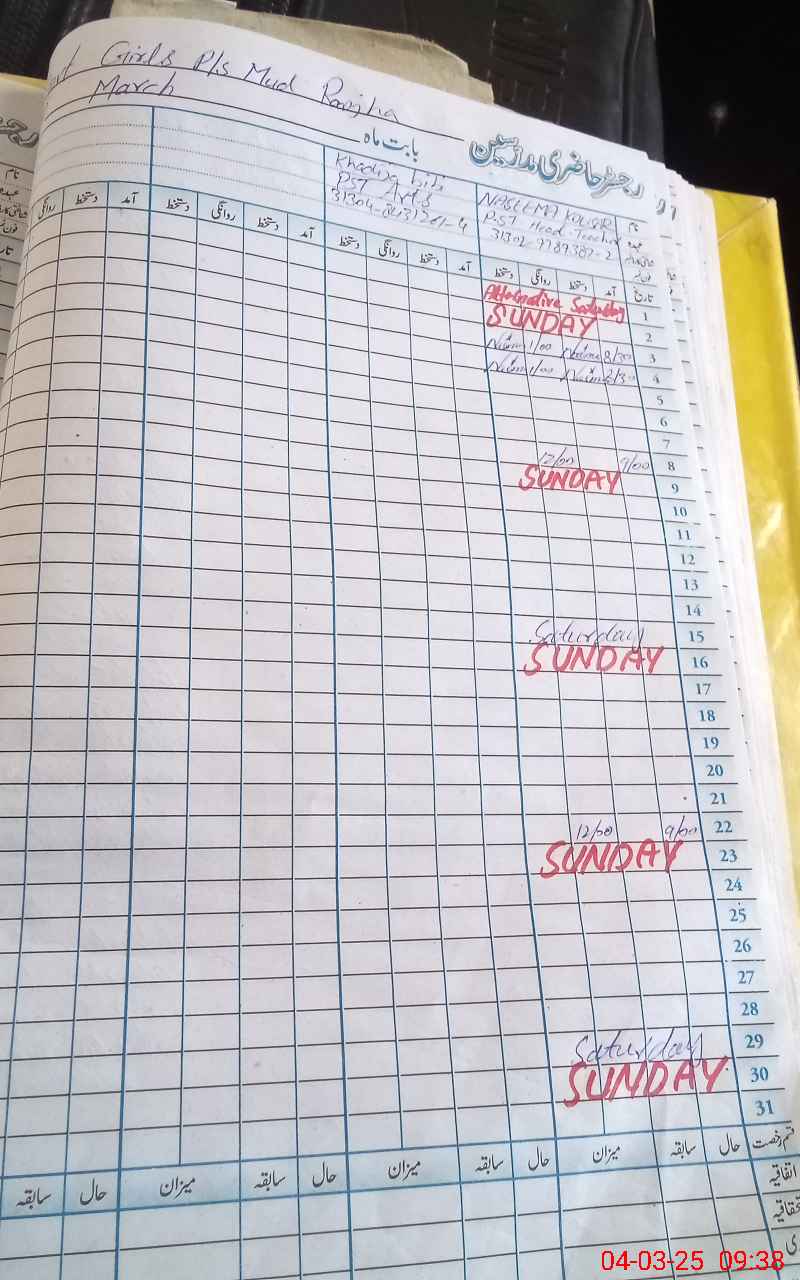 Girls P/s Mud Ranjha
March
رجسٹر حاضری مدرسین
بابت ماہ
نام
NASEEMA KOUSAR
Khadija bibi
PST Head Teacher
PST Arts
31302-9789387-2
تاریخ آمد دستخط روانگی دستخط آمد دستخط روانگی دستخط آمد دستخط روانگی دستخط آمد دستخط روانگی
1 Alternative Saturday
2 SUNDAY
3 8/30 1/00
4 1/00
5
6
7
8 9/00 12/00
9 SUNDAY
10
11
12
13
14
15 Saturday
16 SUNDAY
17
18
19
20
21
22 9/00 12/00
23 SUNDAY
24
25
26
27
28
29 Saturday
30 SUNDAY
31
قسم رخصت حال سابقہ میزان حال سابقہ میزان حال سابقہ میزان حال سابقہ
اتفاقیہ
04-03-25 09:38